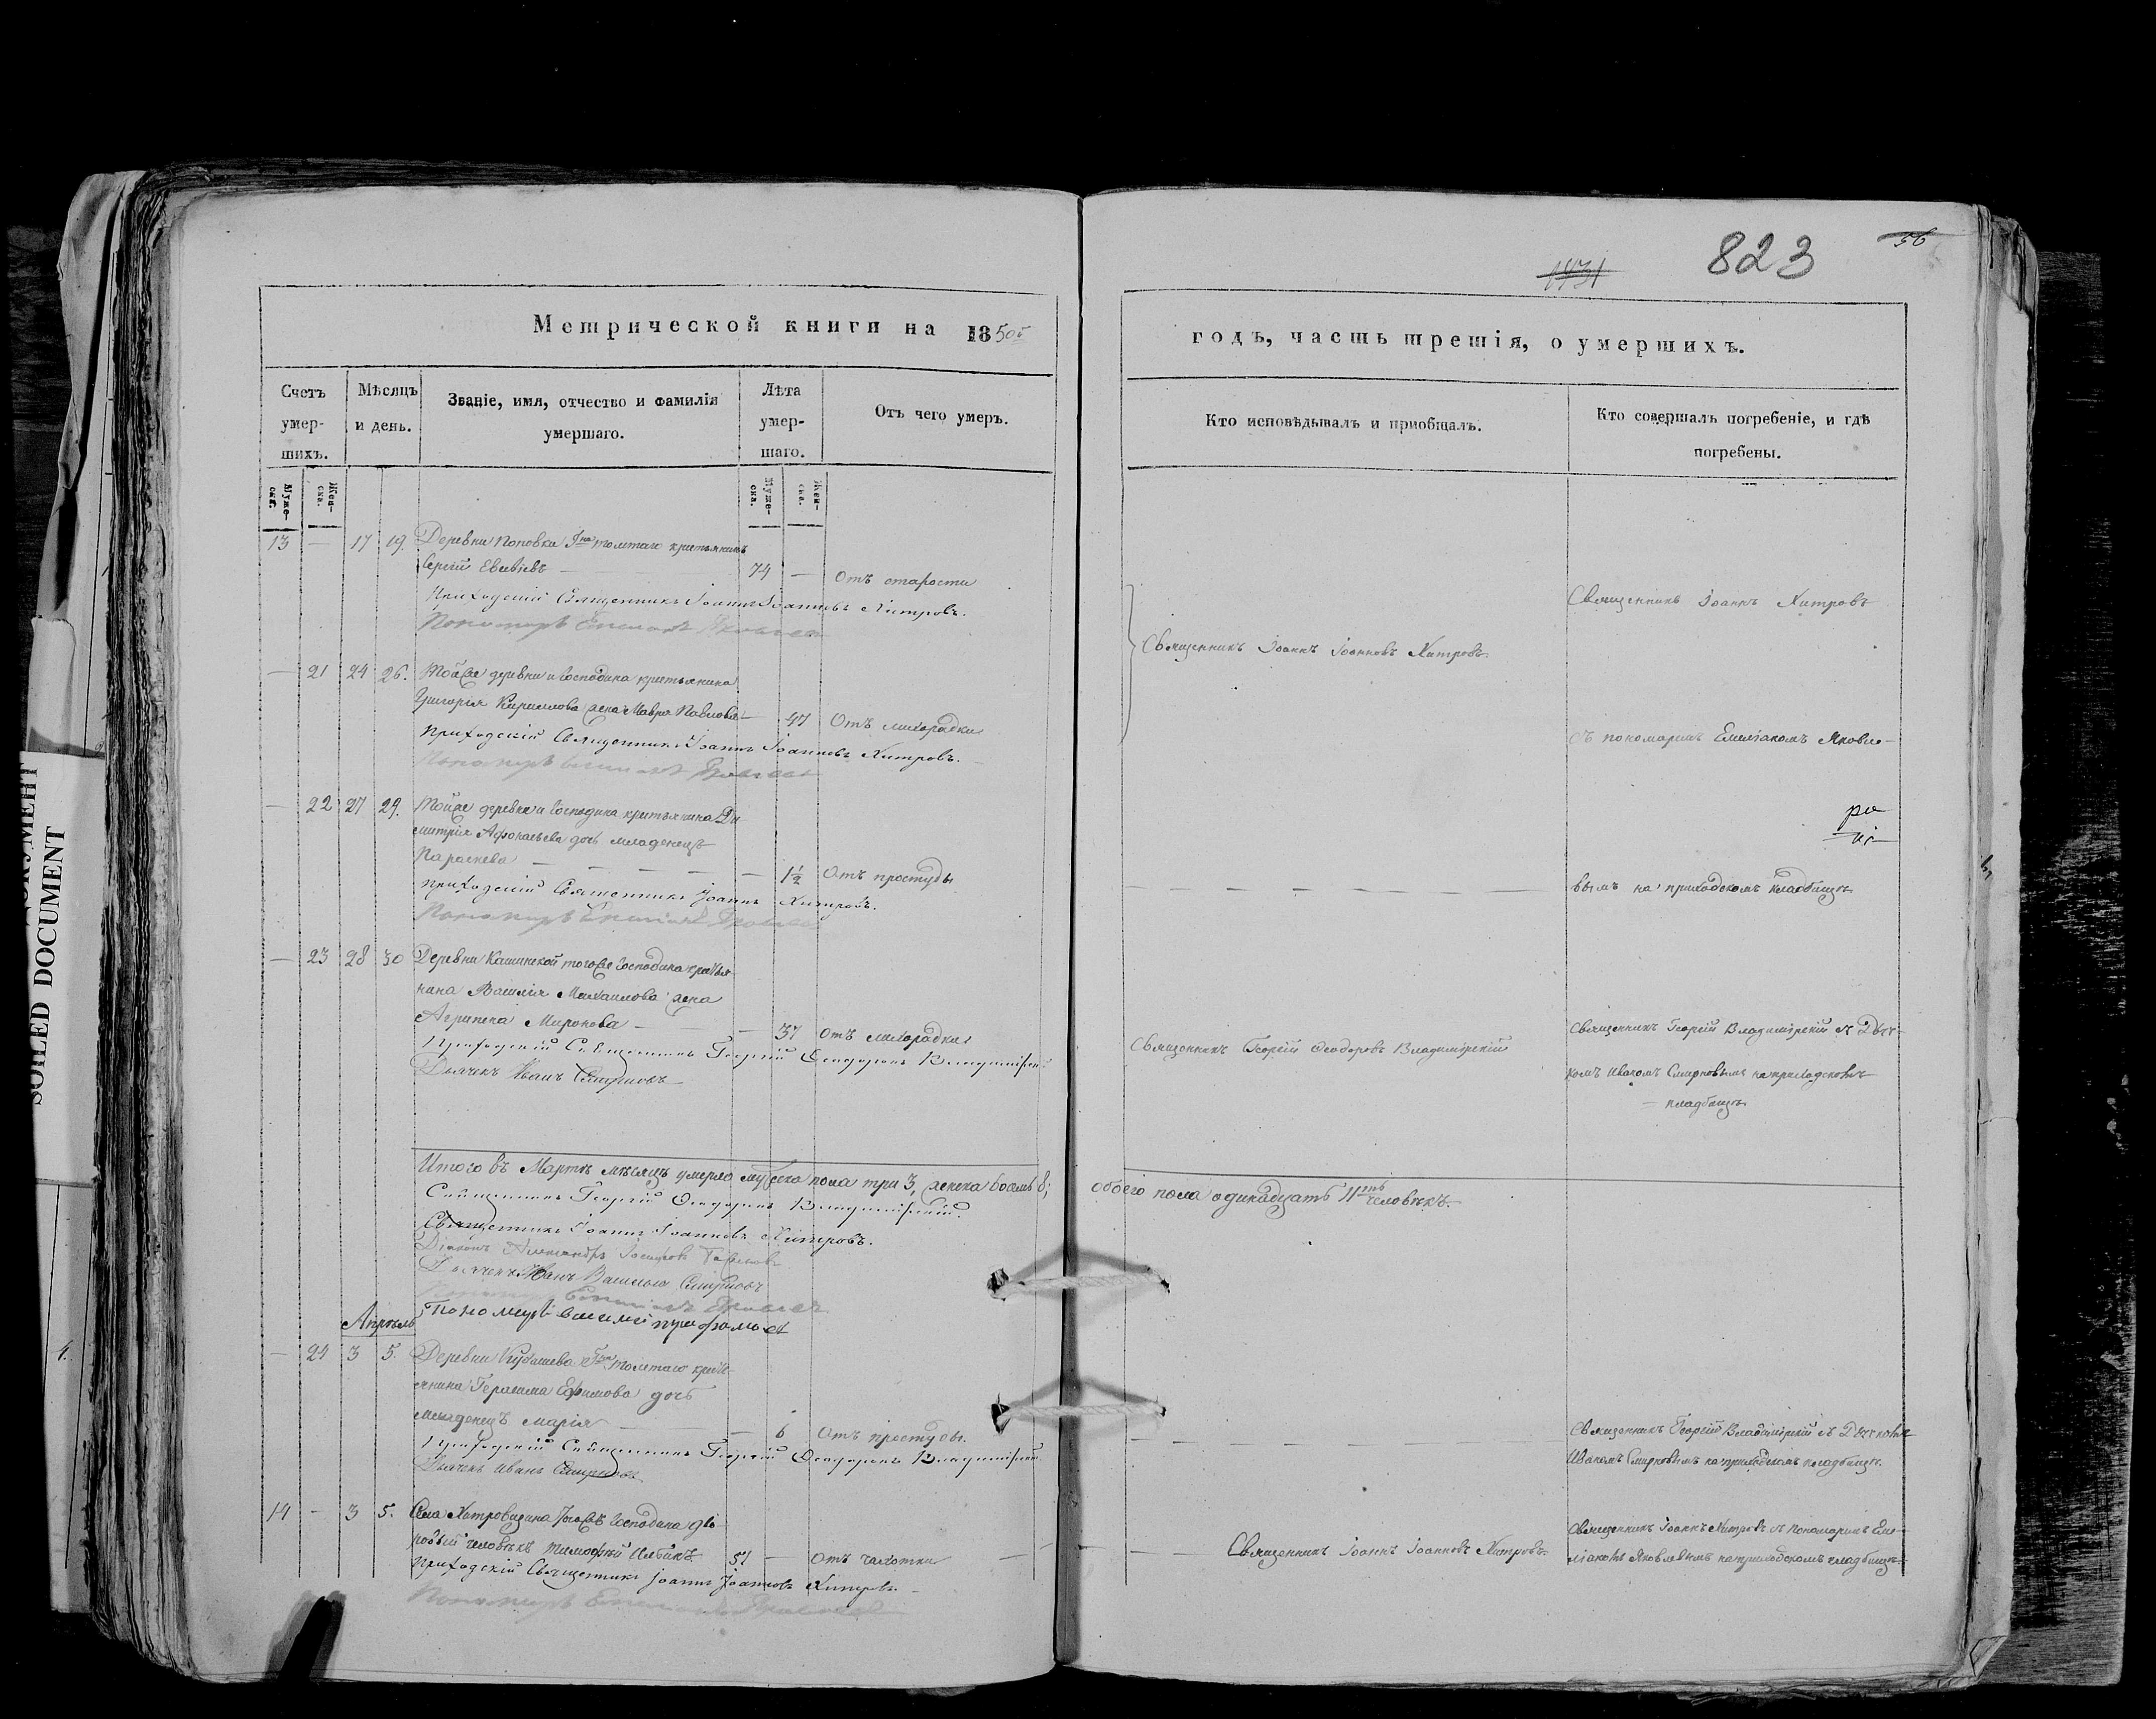 823
56
1431
Метрической книги на 1850й
годъ, часть третія, о умершихъ.
Счетъ умер-шихъ.
Мѣсяцъ и день.
Званіе, имя, отчество и фамилія умершаго.
Лѣта умер-шаго.
Отъ чего умеръ.
Кто исповѣдывалъ и пріобщалъ.
Кто совершалъ погребеніе, и гдѣ погребены.
Муже-ска.
Жен-ска.
Муже-ска.
Жен-ска.
13 — 17 19. Деревни Поповки Гна Толстаго крестьянинъ
Сергій Евсѣевъ — 74 — Отъ старости
Приходскій Священникъ Іоаннъ Іоанновъ Хитровъ.
Пономарь Емиліанъ Яковлев
Священникъ Іоаннъ Хитровъ
Священникъ Іоаннъ Іоанновъ Хитровъ
— 21 24 26. Тойже деревни и Господина крестьянина
Григорія Кириллова жена Мавра Павлова — 47 Отъ лихорадки
Приходскій Священникъ Іоаннъ Іоанновъ Хитровъ.
Пономарь Емиліанъ Яковлев
съ пономаремъ Емиліаномъ Яковле-
— 22 27 29. Тойже деревни и Господина крестьянина Ди
митрія Афонасьева дочь младенецъ
Параскева — — — — 1½ Отъ простуды
Приходскій Священникъ Іоаннъ Хитровъ.
Пономарь Емиліанъ Яковлев
вымъ на приходскомъ кладбищѣ
— 23 28 30 Деревни Кашинской тогоже Господина крестья
нина Василія Михаилова жена
Агрипена Миронова — — 37 Отъ лихорадки
Приходскій Священникъ Георгій Ѳеодоровъ Владимірскій
Дьячекъ Иванъ Смирновъ
Священникъ Георгій Ѳеодоровъ Владимірскій
Священникъ Георгій Владимірскій съ Дьяч-
комъ Иваномъ Смирновымъ на приходскомъ
кладбищѣ
Итого въ Мартѣ мѣсяцѣ умерло мужеска пола три 3, женска восемь 8;
обоего пола одинадцать 11ть человѣкъ.
Священникъ Георгій Ѳеодоровъ Владимірскій.
Священникъ Іоаннъ Іоанновъ Хитровъ.
Діаконъ Александръ Іосифовъ
Дьячекъ Иванъ Васильевъ Смирновъ
Пономарь Емиліанъ Яковлев
Пономарь
Апрѣль
— 24 3 5. Деревни Кубашева Гна Толстаго кресть
янина Герасима Ефимова дочь
младенецъ Марія — — 6 Отъ простуды.
Приходскій Священникъ Георгій Ѳеодоровъ Владимірскій
Дьячекъ Иванъ Смирновъ
Священникъ Георгій Владимірскій съ Дьячкомъ
Иваномъ Смирновымъ на приходскомъ кладбищѣ.
14 — 3 5. Села Хитровщина тогожъ Господина дво-
ровый человѣкъ Тимофей Ильинъ 51 — Отъ чахотки
Приходскій Священникъ Іоаннъ Іоанновъ Хитровъ.
Пономарь Емиліанъ Яковлев
Священникъ Іоаннъ Іоанновъ Хитровъ.
Священникъ Іоаннъ Хитровъ съ Пономаремъ Еми-
ліаномъ Яковлевымъ на приходскомъ кладбищѣ
SOILED DOCUMENT